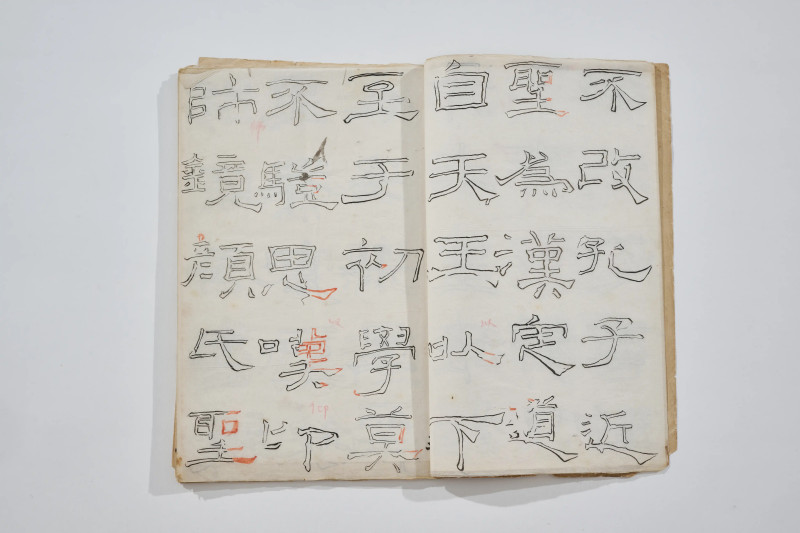 不改孔子近
聖為漢定道
自天王以下
至于初學莫
不思嘆卬
師鏡顏氏聖